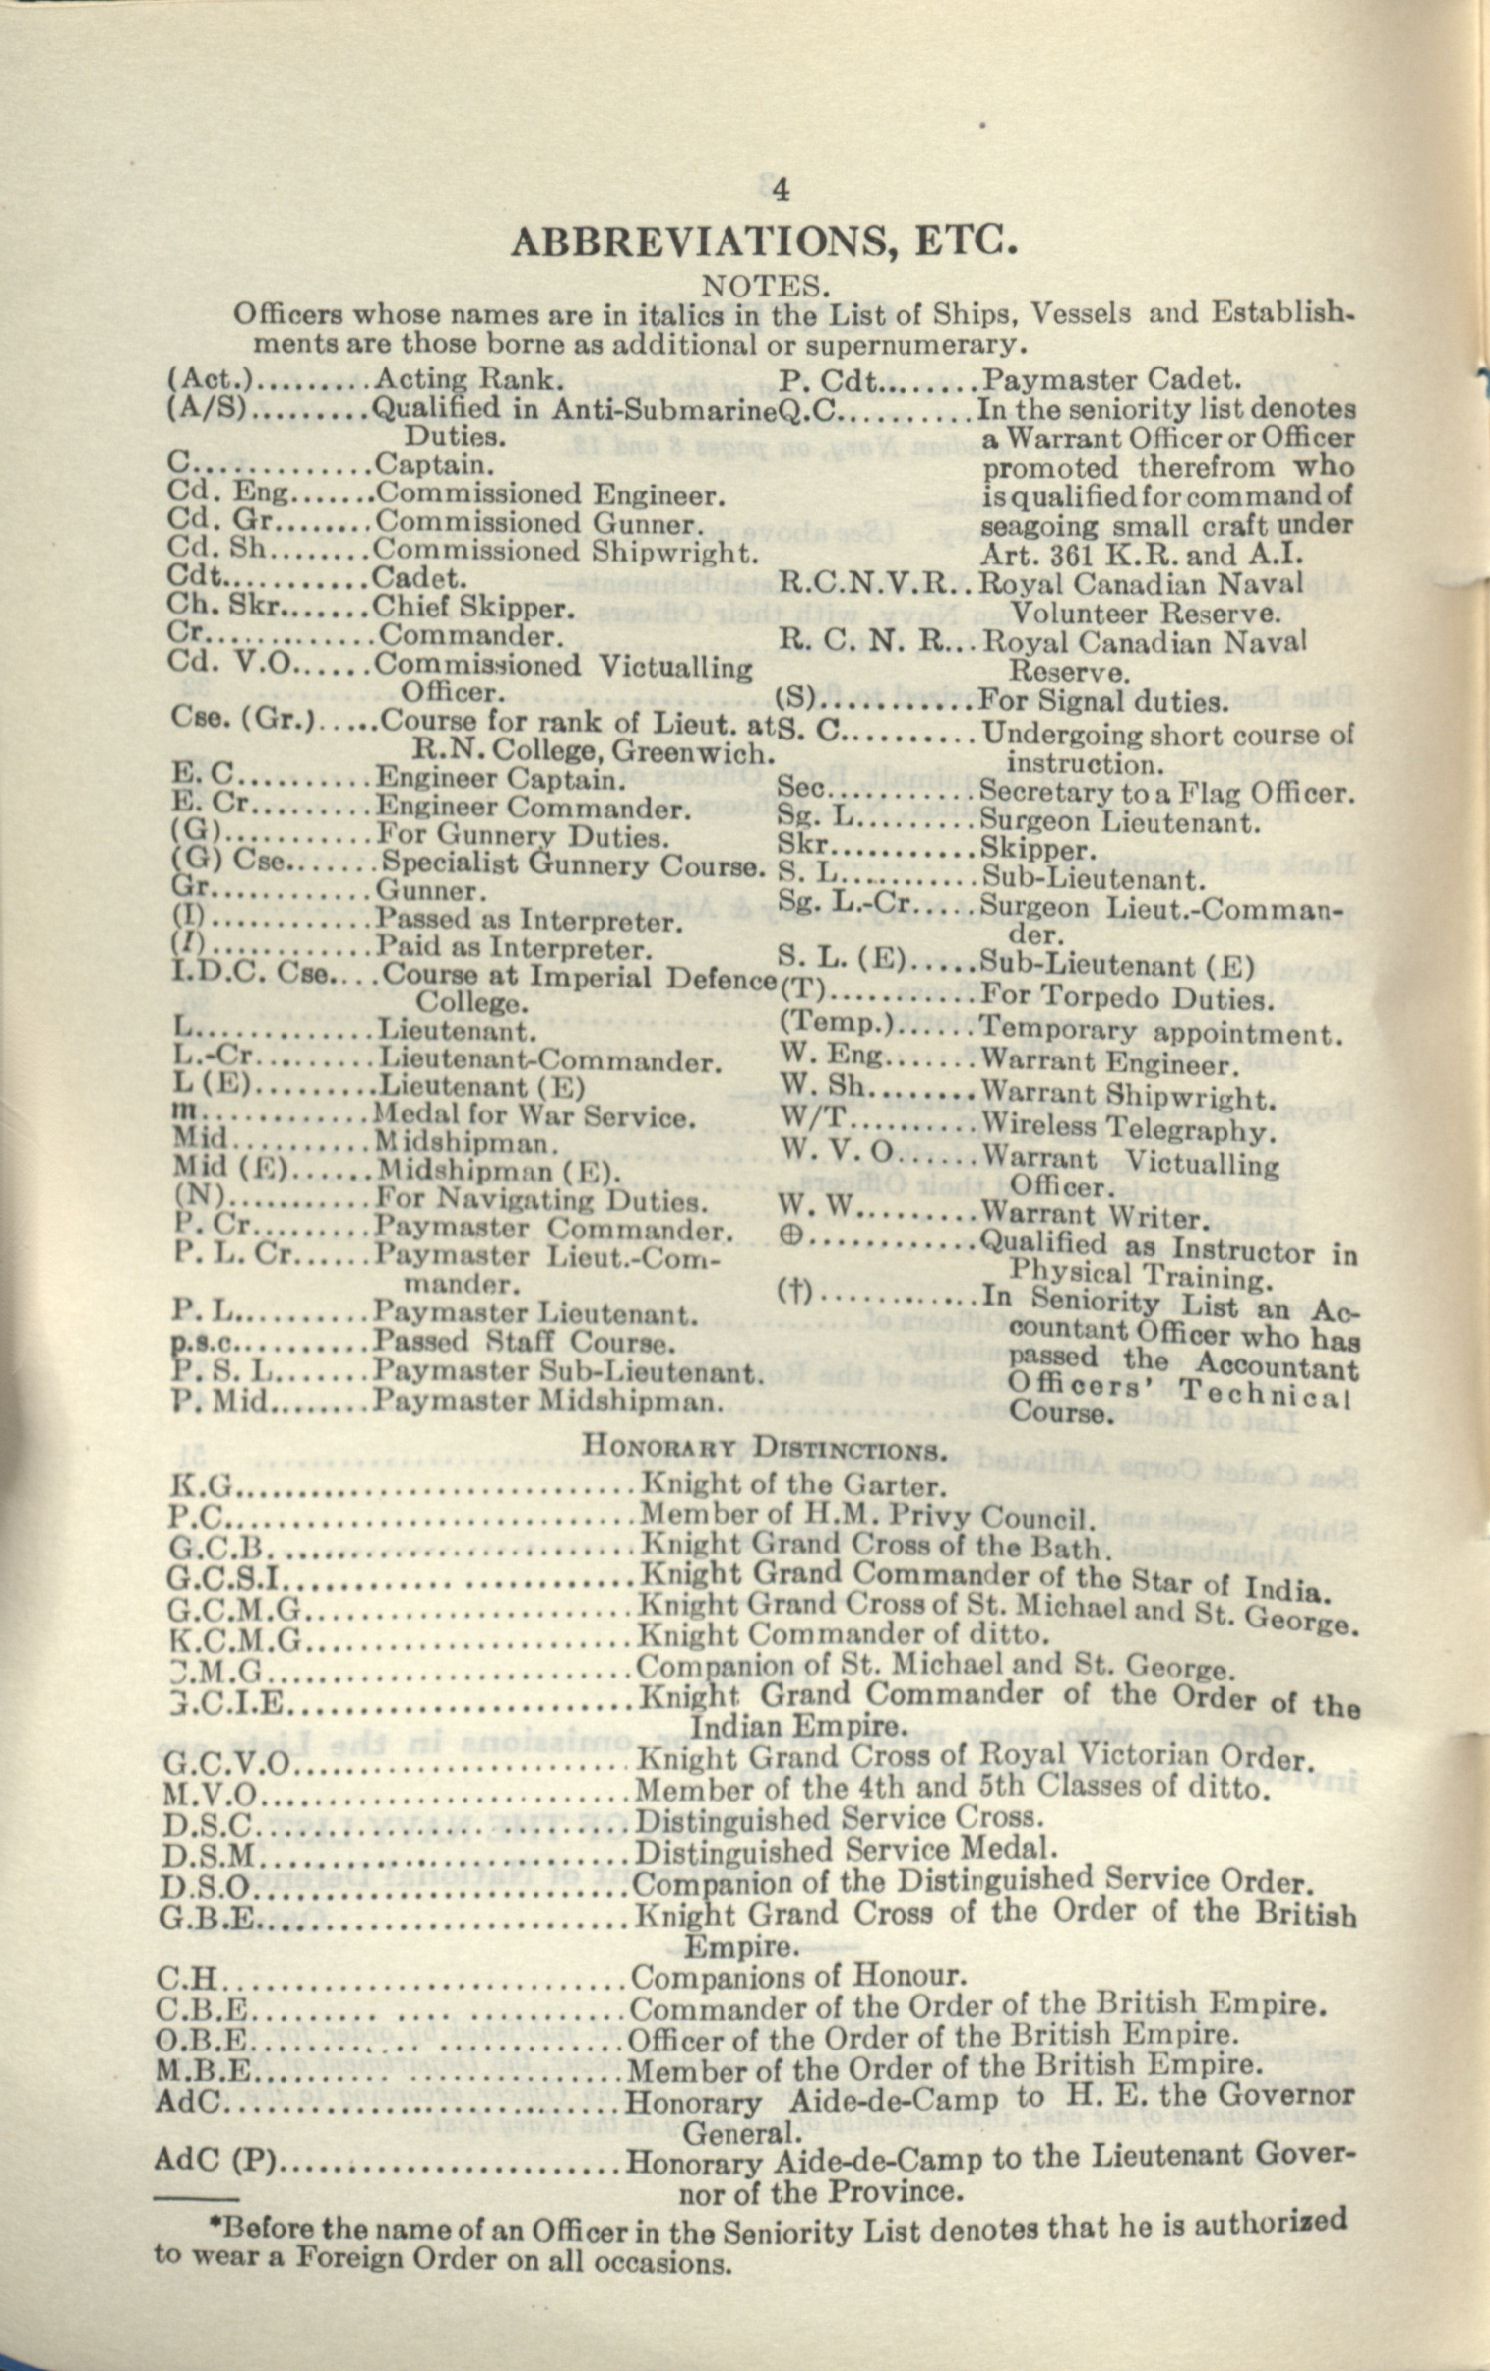 4
ABBREVIATIONS, ETC.
NOTES.
Officers whose names are in italics in the List of Ships, Vessels and Establish-
ments are those borne as additional or supernumerary.
(Act.).........Acting Rank.
(A/S).........Qualified in Anti-Submarine
Duties.
C.............Captain.
Cd. Eng.......Commissioned Engineer.
Cd. Gr........Commissioned Gunner.
Cd. Sh........Commissioned Shipwright.
Cdt...........Cadet.
Ch. Skr.......Chief Skipper.
Cr.............Commander.
Cd. V.O......Commissioned Victualling
Officer.
Cse. (Gr.).....Course for rank of Lieut. at
R.N. College, Greenwich.
E. C..........Engineer Captain.
E. Cr.........Engineer Commander.
(G)...........For Gunnery Duties.
(G) Cse.......Specialist Gunnery Course.
Gr............Gunner.
(I)............Passed as Interpreter.
(I)............Paid as Interpreter.
I.D.C. Cse....Course at Imperial Defence
College.
L.............Lieutenant.
L.-Cr.........Lieutenant-Commander.
L (E).........Lieutenant (E)
m............Medal for War Service.
Mid..........Midshipman.
Mid (E)......Midshipman (E).
(N)...........For Navigating Duties.
P. Cr.........Paymaster Commander.
P. L. Cr......Paymaster Lieut.-Com-
mander.
P. L..........Paymaster Lieutenant.
p.s.c..........Passed Staff Course.
P. S. L.......Paymaster Sub-Lieutenant.
P. Mid........Paymaster Midshipman.
P. Cdt........Paymaster Cadet.
Q.C...........In the seniority list denotes
a Warrant Officer or Officer
promoted therefrom who
is qualified for command of
seagoing small craft under
Art. 361 K.R. and A.I.
R.C.N.V.R..Royal Canadian Naval
Volunteer Reserve.
R. C. N. R...Royal Canadian Naval
Reserve.
(S)...........For Signal duties.
S. C..........Undergoing short course of
instruction.
Sec...........Secretary to a Flag Officer.
Sg. L.........Surgeon Lieutenant.
Skr...........Skipper.
S. L...........Sub-Lieutenant.
Sg. L.-Cr.....Surgeon Lieut.-Comman-
der.
S. L. (E).....Sub-Lieutenant (E)
(T)...........For Torpedo Duties.
(Temp.)......Temporary appointment.
W. Eng.......Warrant Engineer.
W. Sh........Warrant Shipwright.
W/T..........Wireless Telegraphy.
W. V. O......Warrant Victualling
Officer.
W. W.........Warrant Writer.
⊕............Qualified as Instructor in
Physical Training.
(†)............In Seniority List an Ac-
countant Officer who has
passed the Accountant
Officers' Technical
Course.
HONORARY DISTINCTIONS.
K.G.............................Knight of the Garter.
P.C..............................Member of H.M. Privy Council.
G.C.B. .........................Knight Grand Cross of the Bath.
G.C.S.I............. ............Knight Grand Commander of the Star of India.
G.C.M.G........................Knight Grand Cross of St. Michael and St. George.
K.C.M.G........................Knight Commander of ditto.
C.M.G..........................Companion of St. Michael and St. George.
G.C.I.E.........................Knight Grand Commander of the Order of the
Indian Empire.
G.C.V.O........................Knight Grand Cross of Royal Victorian Order.
M.V.O..........................Member of the 4th and 5th Classes of ditto.
D.S.C................. .........Distinguished Service Cross.
D.S.M..........................Distinguished Service Medal.
D.S.O...........................Companion of the Distinguished Service Order.
G.B.E...........................Knight Grand Cross of the Order of the British
Empire.
C.H.............................Companions of Honour.
C.B.E......... .... ...........Commander of the Order of the British Empire.
O.B.E............ .............Officer of the Order of the British Empire.
M.B.E.......... ...............Member of the Order of the British Empire.
AdC............................Honorary Aide-de-Camp to H. E. the Governor
General.
AdC (P)........................Honorary Aide-de-Camp to the Lieutenant Gover-
nor of the Province.
*Before the name of an Officer in the Seniority List denotes that he is authorized
to wear a Foreign Order on all occasions.